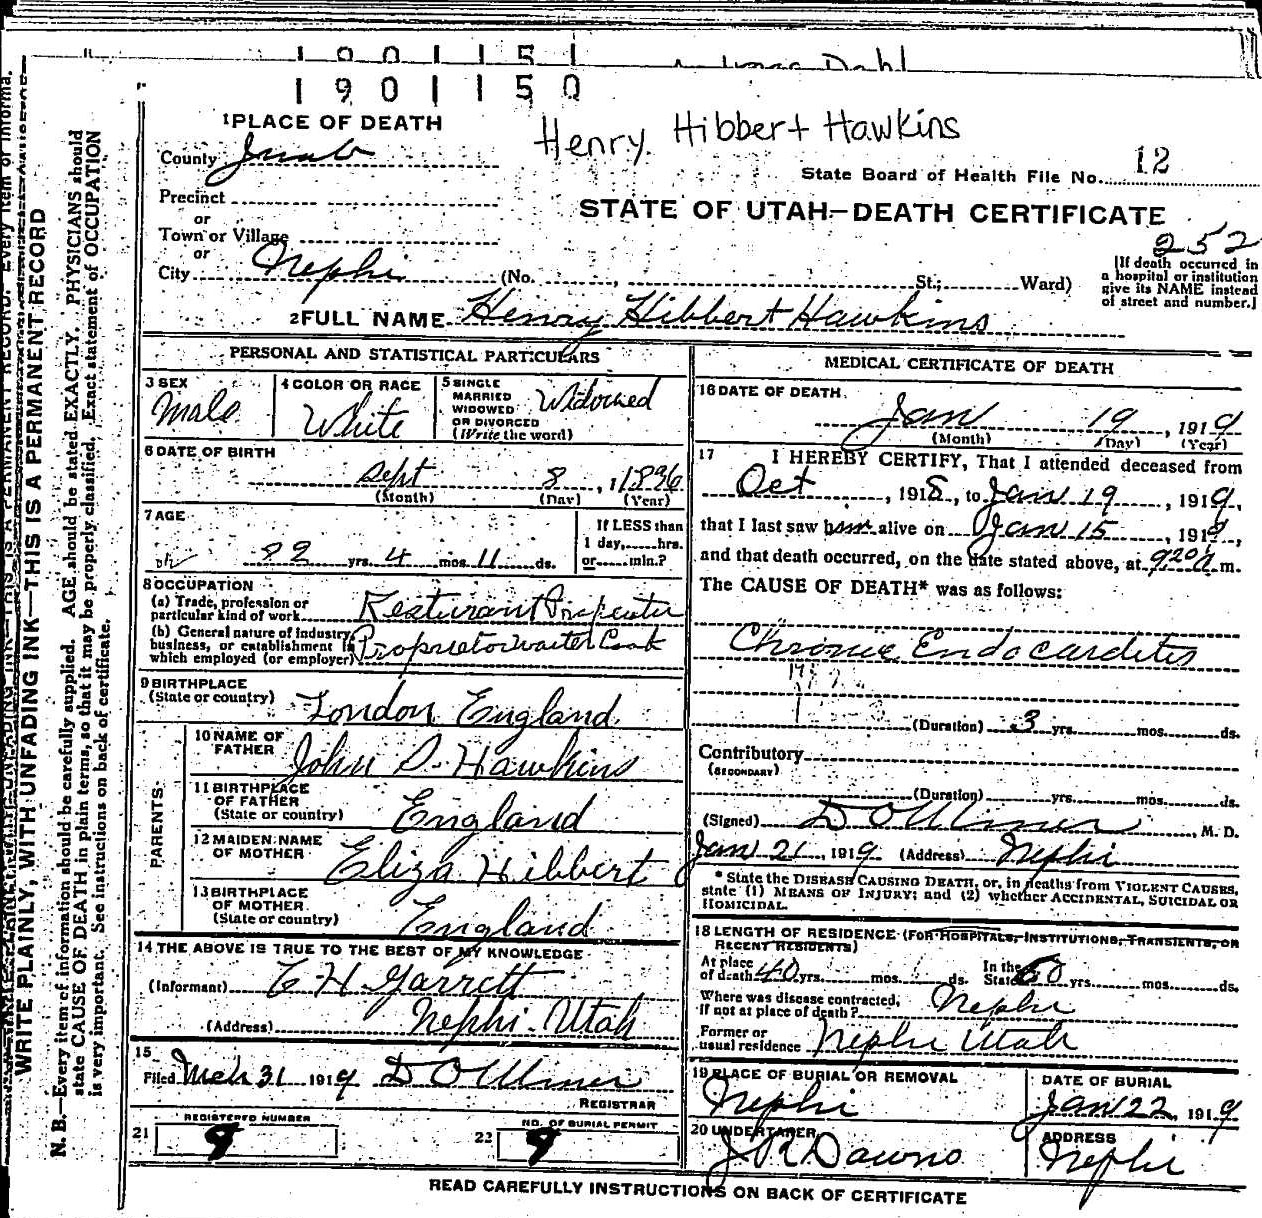 1901150
Henry Hibbert Hawkins
1 PLACE OF DEATH
County Juab
State Board of Health File No. 12
Precinct
or
STATE OF UTAH—DEATH CERTIFICATE
Town or Village
or
252
City Nephi (No. , St.; Ward)
[If death occurred in
a hospital or institution
give its NAME instead
of street and number.]
2 FULL NAME Henry Hibbert Hawkins
PERSONAL AND STATISTICAL PARTICULARS
3 SEX
Male
4 COLOR OR RACE
White
5 SINGLE
MARRIED
WIDOWED
OR DIVORCED
(Write the word)
Widowed
6 DATE OF BIRTH
Sept 8, 1836
(Month) (Day) (Year)
7 AGE
82 yrs. 4 mos. 11 ds.
If LESS than
1 day, hrs.
or min.?
8 OCCUPATION
(a) Trade, profession or
particular kind of work
Resturant
(b) General nature of industry,
business, or establishment in
which employed (or employer)
Proprietor waiter Cook
9 BIRTHPLACE
(State or country)
London England
PARENTS
10 NAME OF
FATHER
John S. Hawkins
11 BIRTHPLACE
OF FATHER
(State or country)
England
12 MAIDEN NAME
OF MOTHER
Eliza Hibbert
13 BIRTHPLACE
OF MOTHER
(State or country)
England
14 THE ABOVE IS TRUE TO THE BEST OF MY KNOWLEDGE
(Informant) C H Garrett
(Address) Nephi - Utah
15
Filed Mch 31 1919 D O Miner
REGISTRAR
REGISTERED NUMBER
21 9
NO. OF BURIAL PERMIT
22 9
MEDICAL CERTIFICATE OF DEATH
16 DATE OF DEATH
Jan 19, 1919
(Month) (Day) (Year)
17 I HEREBY CERTIFY, That I attended deceased from
Oct, 1918, to Jan 19, 1919,
that I last saw him alive on Jan 15, 1919,
and that death occurred, on the date stated above, at 920 a m.
The CAUSE OF DEATH* was as follows:
Chronic Endocarditis
(Duration) 3 yrs. mos. ds.
Contributory
(SECONDARY)
(Duration) yrs. mos. ds.
(Signed) D O Miner, M. D.
Jan 21, 1919 (Address) Nephi
* State the DISEASE CAUSING DEATH, or, in deaths from VIOLENT CAUSES,
state (1) MEANS OF INJURY; and (2) whether ACCIDENTAL, SUICIDAL OR
HOMICIDAL.
18 LENGTH OF RESIDENCE (FOR HOSPITALS, INSTITUTIONS, TRANSIENTS, OR
RECENT RESIDENTS)
At place
of death 40 yrs. mos. ds.
In the
State 60 yrs. mos. ds.
Where was disease contracted,
if not at place of death? Nephi
Former or
usual residence Nephi Utah
19 PLACE OF BURIAL OR REMOVAL
Nephi
DATE OF BURIAL
Jan 22, 1919
20 UNDERTAKER
ADDRESS
Nephi
READ CAREFULLY INSTRUCTIONS ON BACK OF CERTIFICATE
WRITE PLAINLY, WITH UNFADING INK—THIS IS A PERMANENT RECORD
N. B.—Every item of information should be carefully supplied. AGE should be stated EXACTLY. PHYSICIANS should
state CAUSE OF DEATH in plain terms, so that it may be properly classified. Exact statement of OCCUPATION
is very important. See instructions on back of certificate.